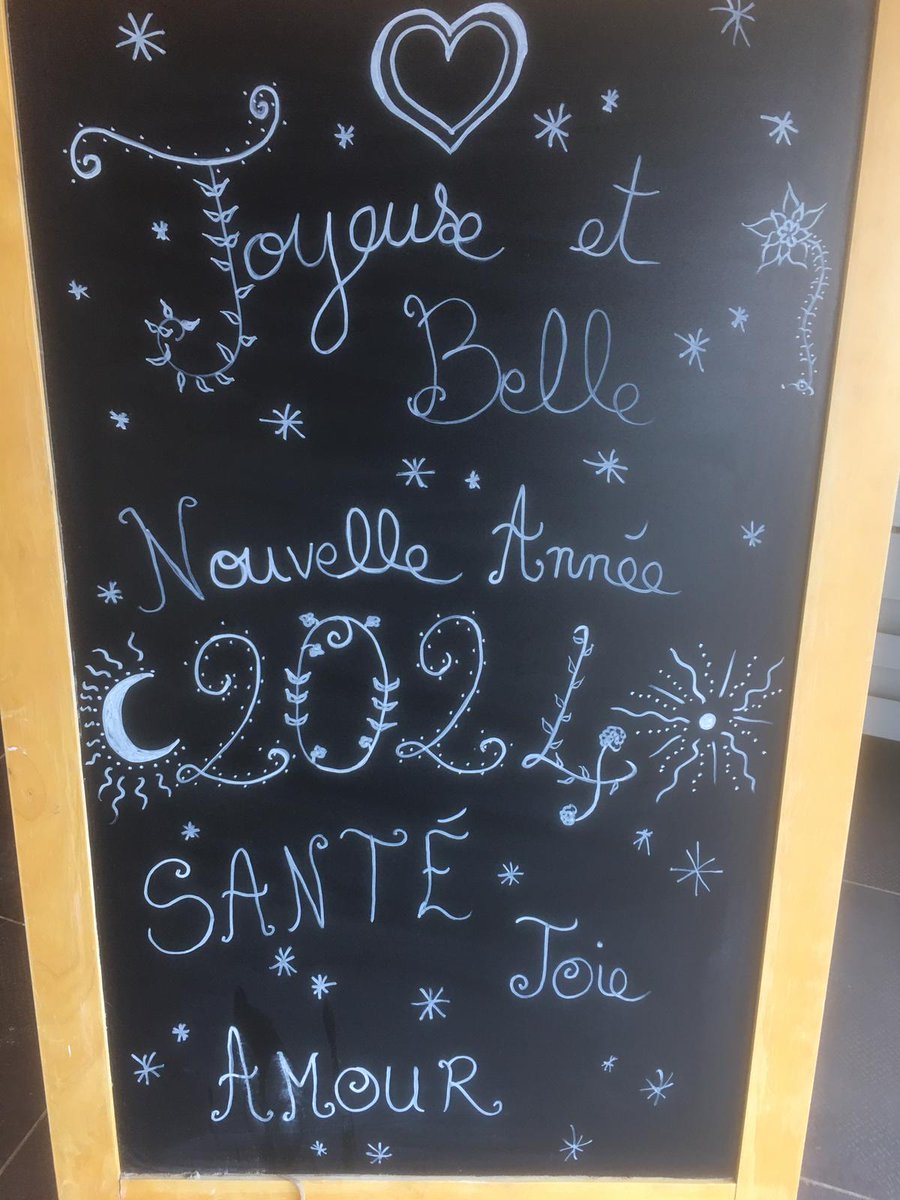 Joyeuse et
Belle
Nouvelle Année
2024
SANTÉ
Joie
AMOUR